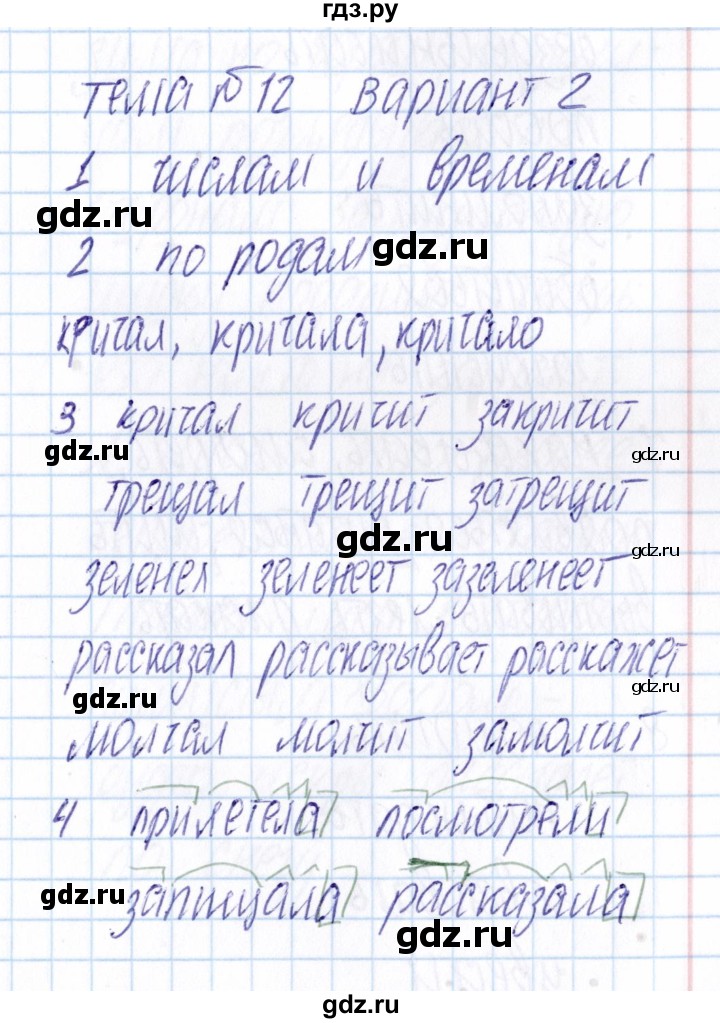 гдз.ру
тема №12 вариант 2
1 числам и временам
gdz.ru
2 по родам
gdz.ru
кричал, кричала, кричало
3 кричал кричит закричит
gdz.ru
gdz.ru
трещал трещит затрещит
gdz.ru
gdz.ru
зеленел зеленеет зазеленеет
рассказал рассказывает расскажет
gdz.ru
gdz.ru
молчал молчит замолчит
4 прилетела посмотрели
gdz.ru
gdz.ru
запищала рассказала
gdz.ru
gdz.ru